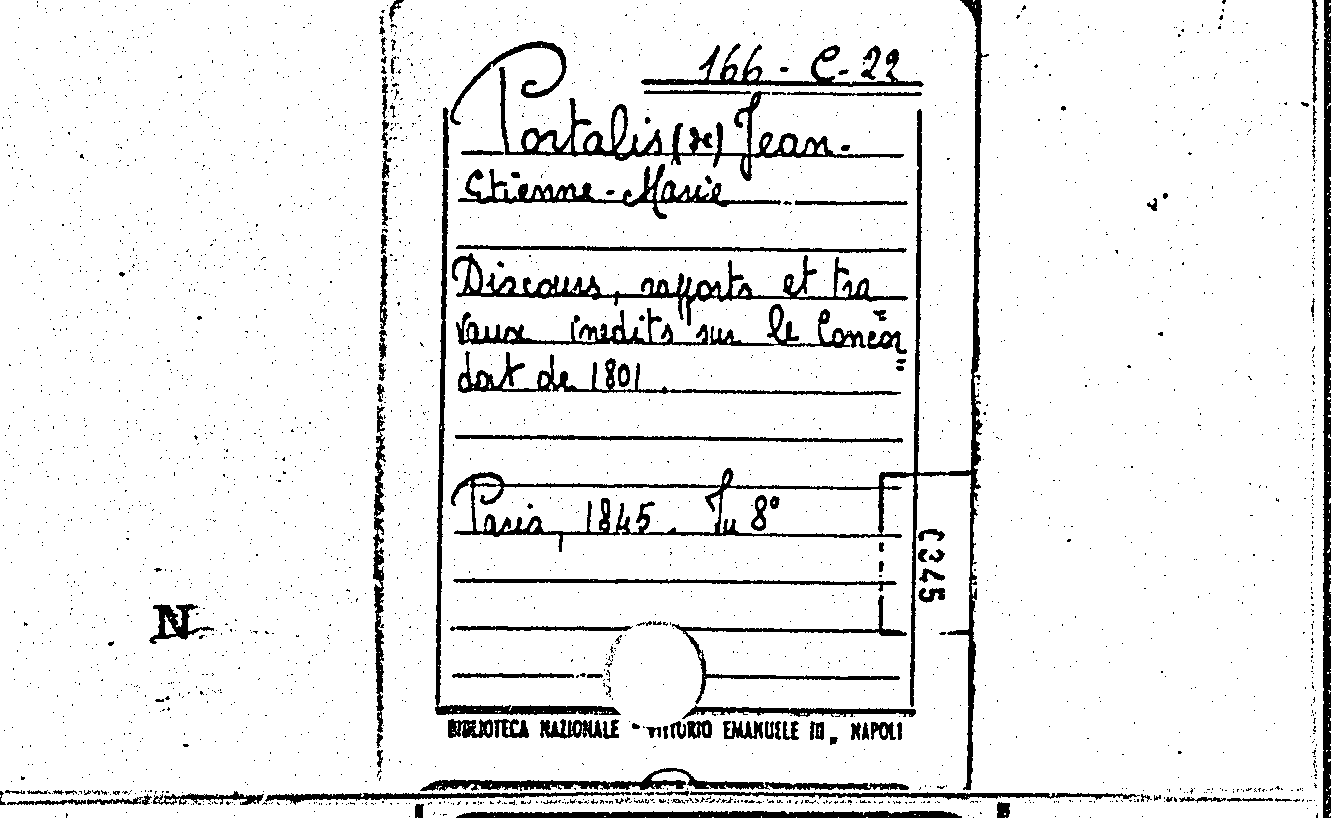 166 - C - 22
Portalis (de) Jean-
Etienne-Marie
Discours, rapports et tra
vaux inedits sur le Concor
dat de 1801.
Paris, 1845. In 8°
C345
N
BIBLIOTECA NAZIONALE - VITTORIO EMANUELE III, NAPOLI